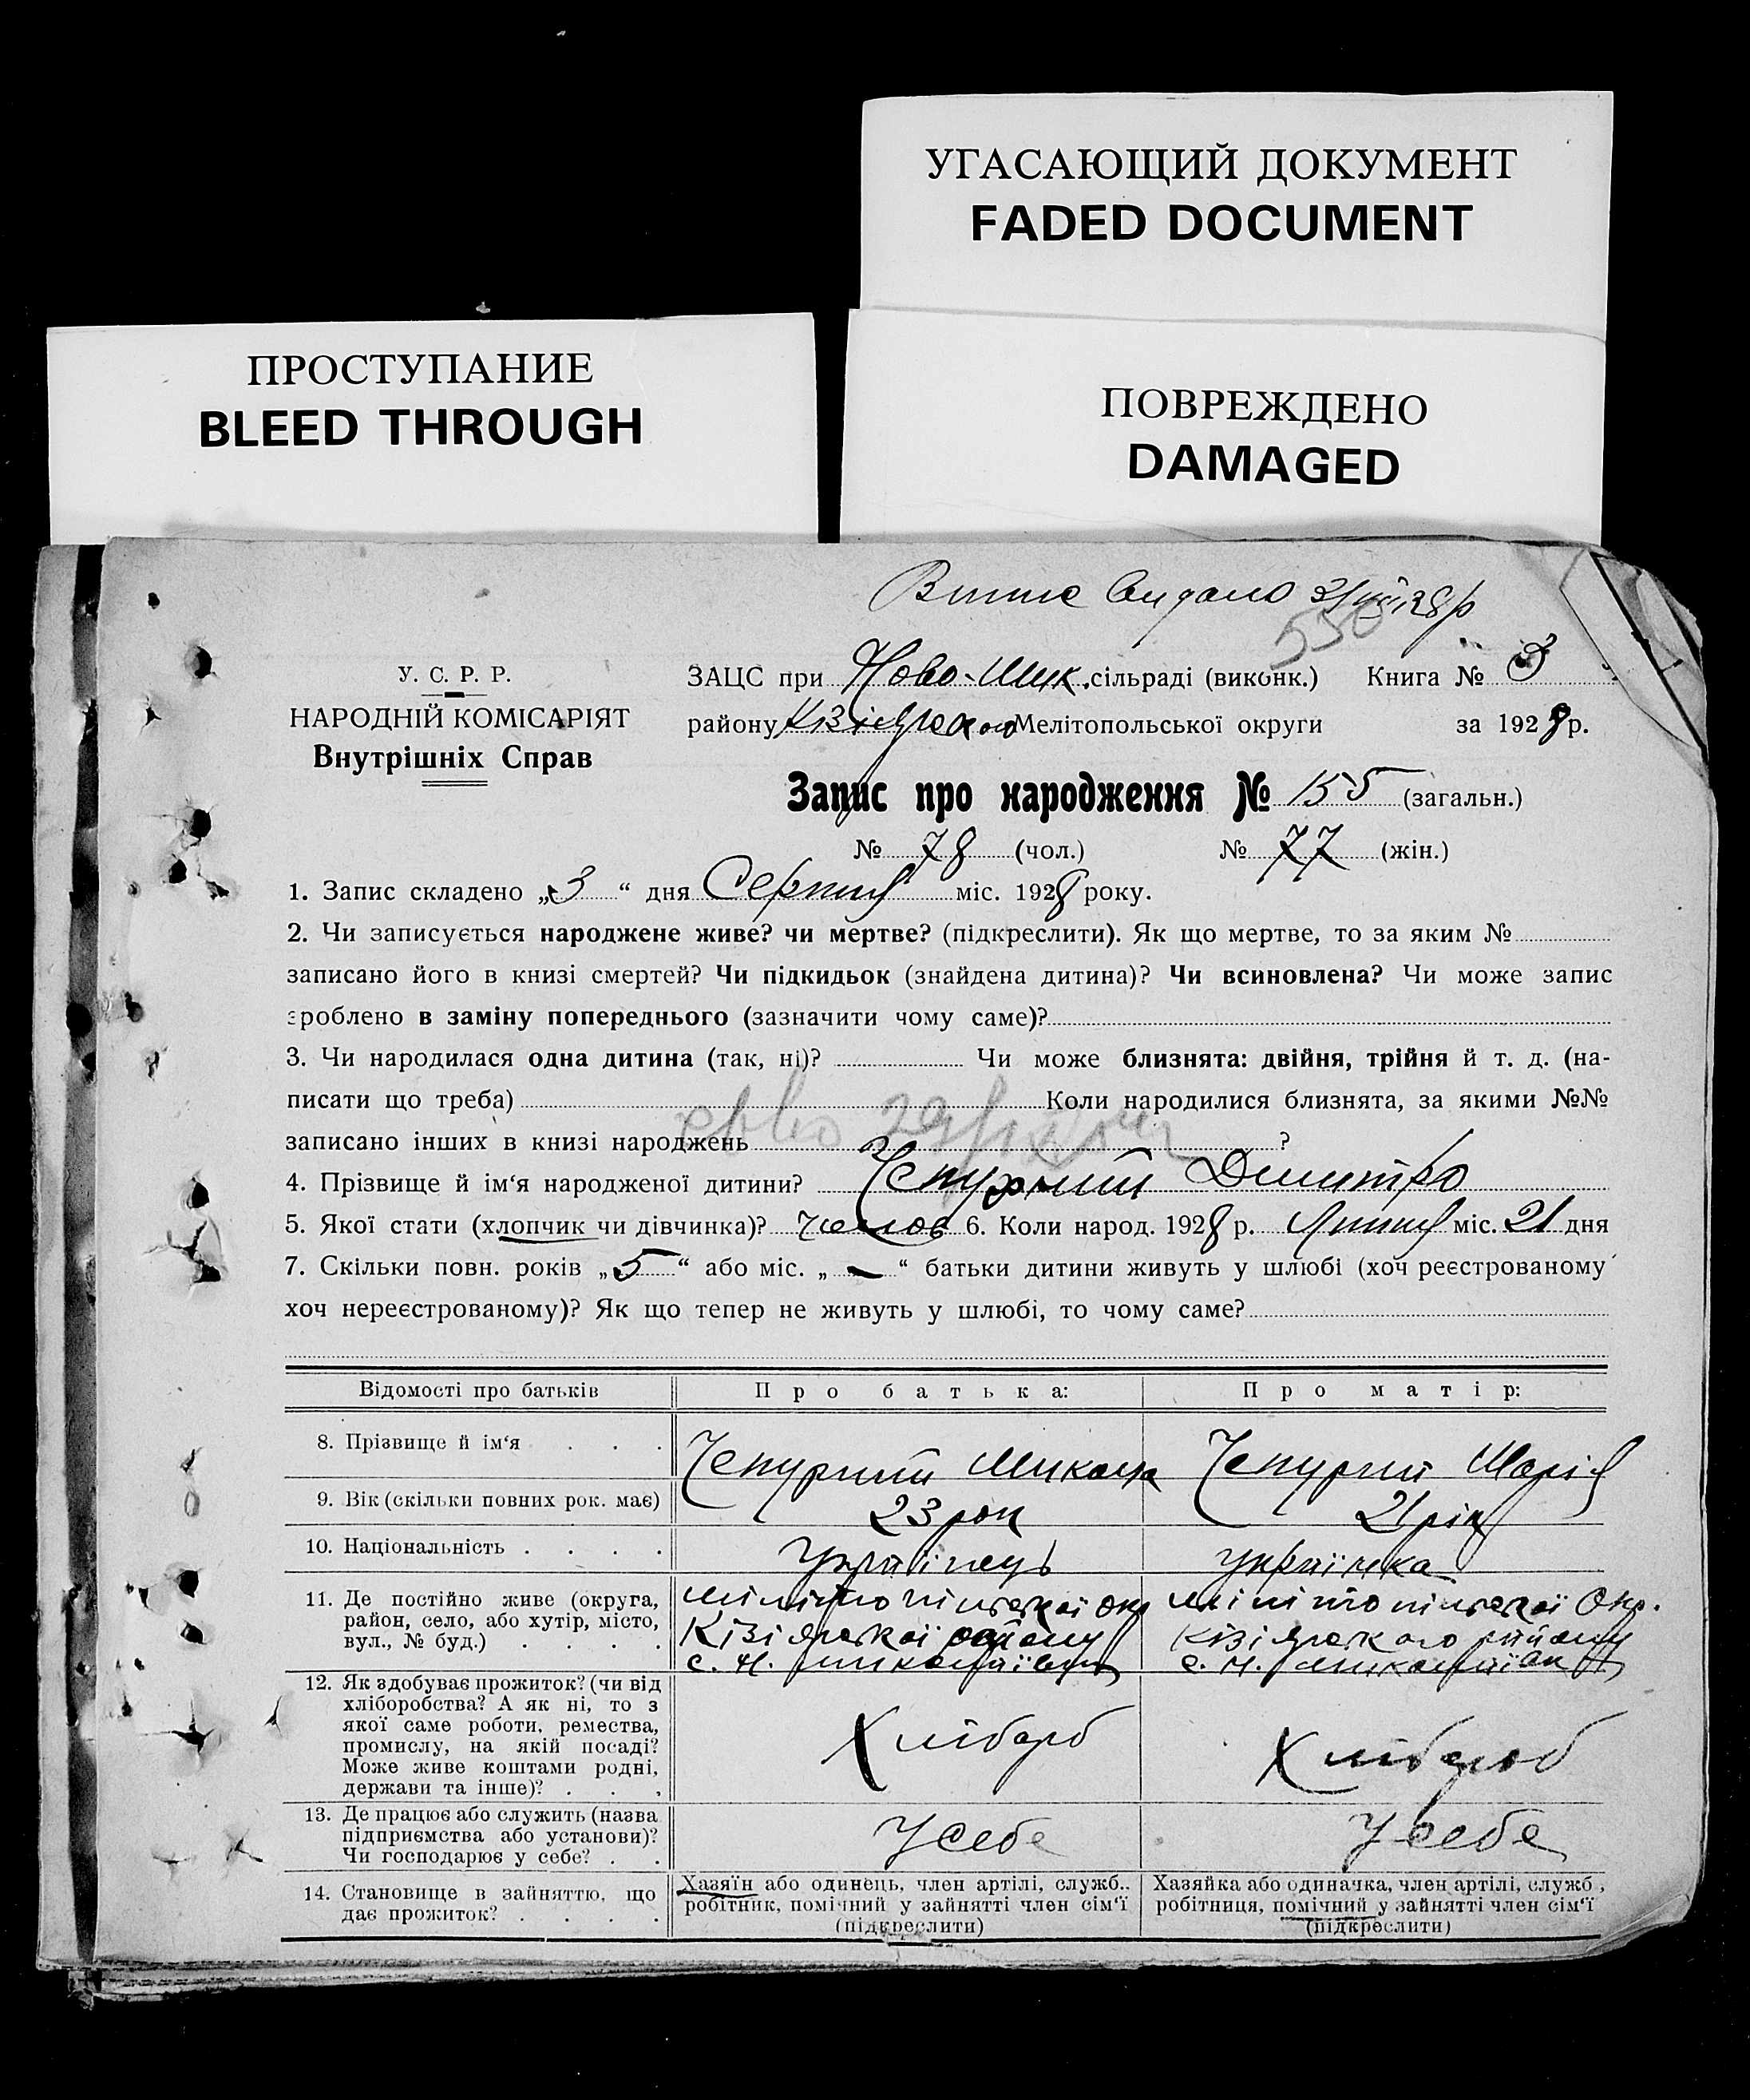 УГАСАЮЩИЙ ДОКУМЕНТ
FADED DOCUMENT
ПРОСТУПАНИЕ
BLEED THROUGH
ПОВРЕЖДЕНО
DAMAGED
Видано
550
У. С. Р. Р.
НАРОДНІЙ КОМІСАРІЯТ
Внутрішніх Справ
ЗАЦС при Ново-Мик. сільраді (виконк.) Книга № 3
району Кізіярского Мелітопольської округи за 1928 р.
Запис про народження № 155 (загальн.)
№ 78 (чол.) № 77 (жін.)
1. Запис складено „3“ дня Серпня міс. 1928 року.
2. Чи записується народжене живе? чи мертве? (підкреслити). Як що мертве, то за яким №
записано його в книзі смертей? Чи підкидьок (знайдена дитина)? Чи всиновлена? Чи може запис
зроблено в заміну попереднього (зазначити чому саме)?
3. Чи народилася одна дитина (так, ні)? Чи може близнята: двійня, трійня й т. д. (на-
писати що треба) Коли народилися близнята, за якими №№
записано інших в книзі народжень ?
4. Прізвище й ім‘я народженої дитини? Чепурний Дмитро
5. Якої стати (хлопчик чи дівчинка)? 6. Коли народ. 1928 р. Липня міс. 21 дня
7. Скільки повн. років „5“ або міс. „—“ батьки дитини живуть у шлюбі (хоч реєстрованому
хоч нереєстрованому)? Як що тепер не живуть у шлюбі, то чому саме?
Відомості про батьків Про батька: Про матір:
8. Прізвище й ім‘я . . . Чепурний Микола Чепурний Марія
9. Вік (скільки повних рок. має) 23 рок 21 рік
10. Національність . . . . Українець Українка
11. Де постійно живе (округа, район, село, або хутір, місто, вул., № буд.) . . . .
Мілітопільської Окр Мілітопільської Окр.
Кізіярської району Кізіярского району
с. Н. Миколаївка с. Н. Миколаївка
12. Як здобуває прожиток? (чи від
хліборобства? А як ні, то з
якої саме роботи, ремества,
промислу, на якій посаді?
Може живе коштами родні,
держави та інше)? . . .
Хлібороб Хлібороб
13. Де працює або служить (назва
підприємства або установи)?
Чи господарює у себе? . .
У себе У себе
14. Становище в зайняттю, що
дає прожиток? . . . .
Хазяїн або одинець, член артілі, службː. Хазяйка або одиначка, член артілі, служб.,
робітник, помічний у зайнятті член сім‘ї робітниця, помічний у зайнятті член сім‘ї
(підкреслити) (підкреслити)